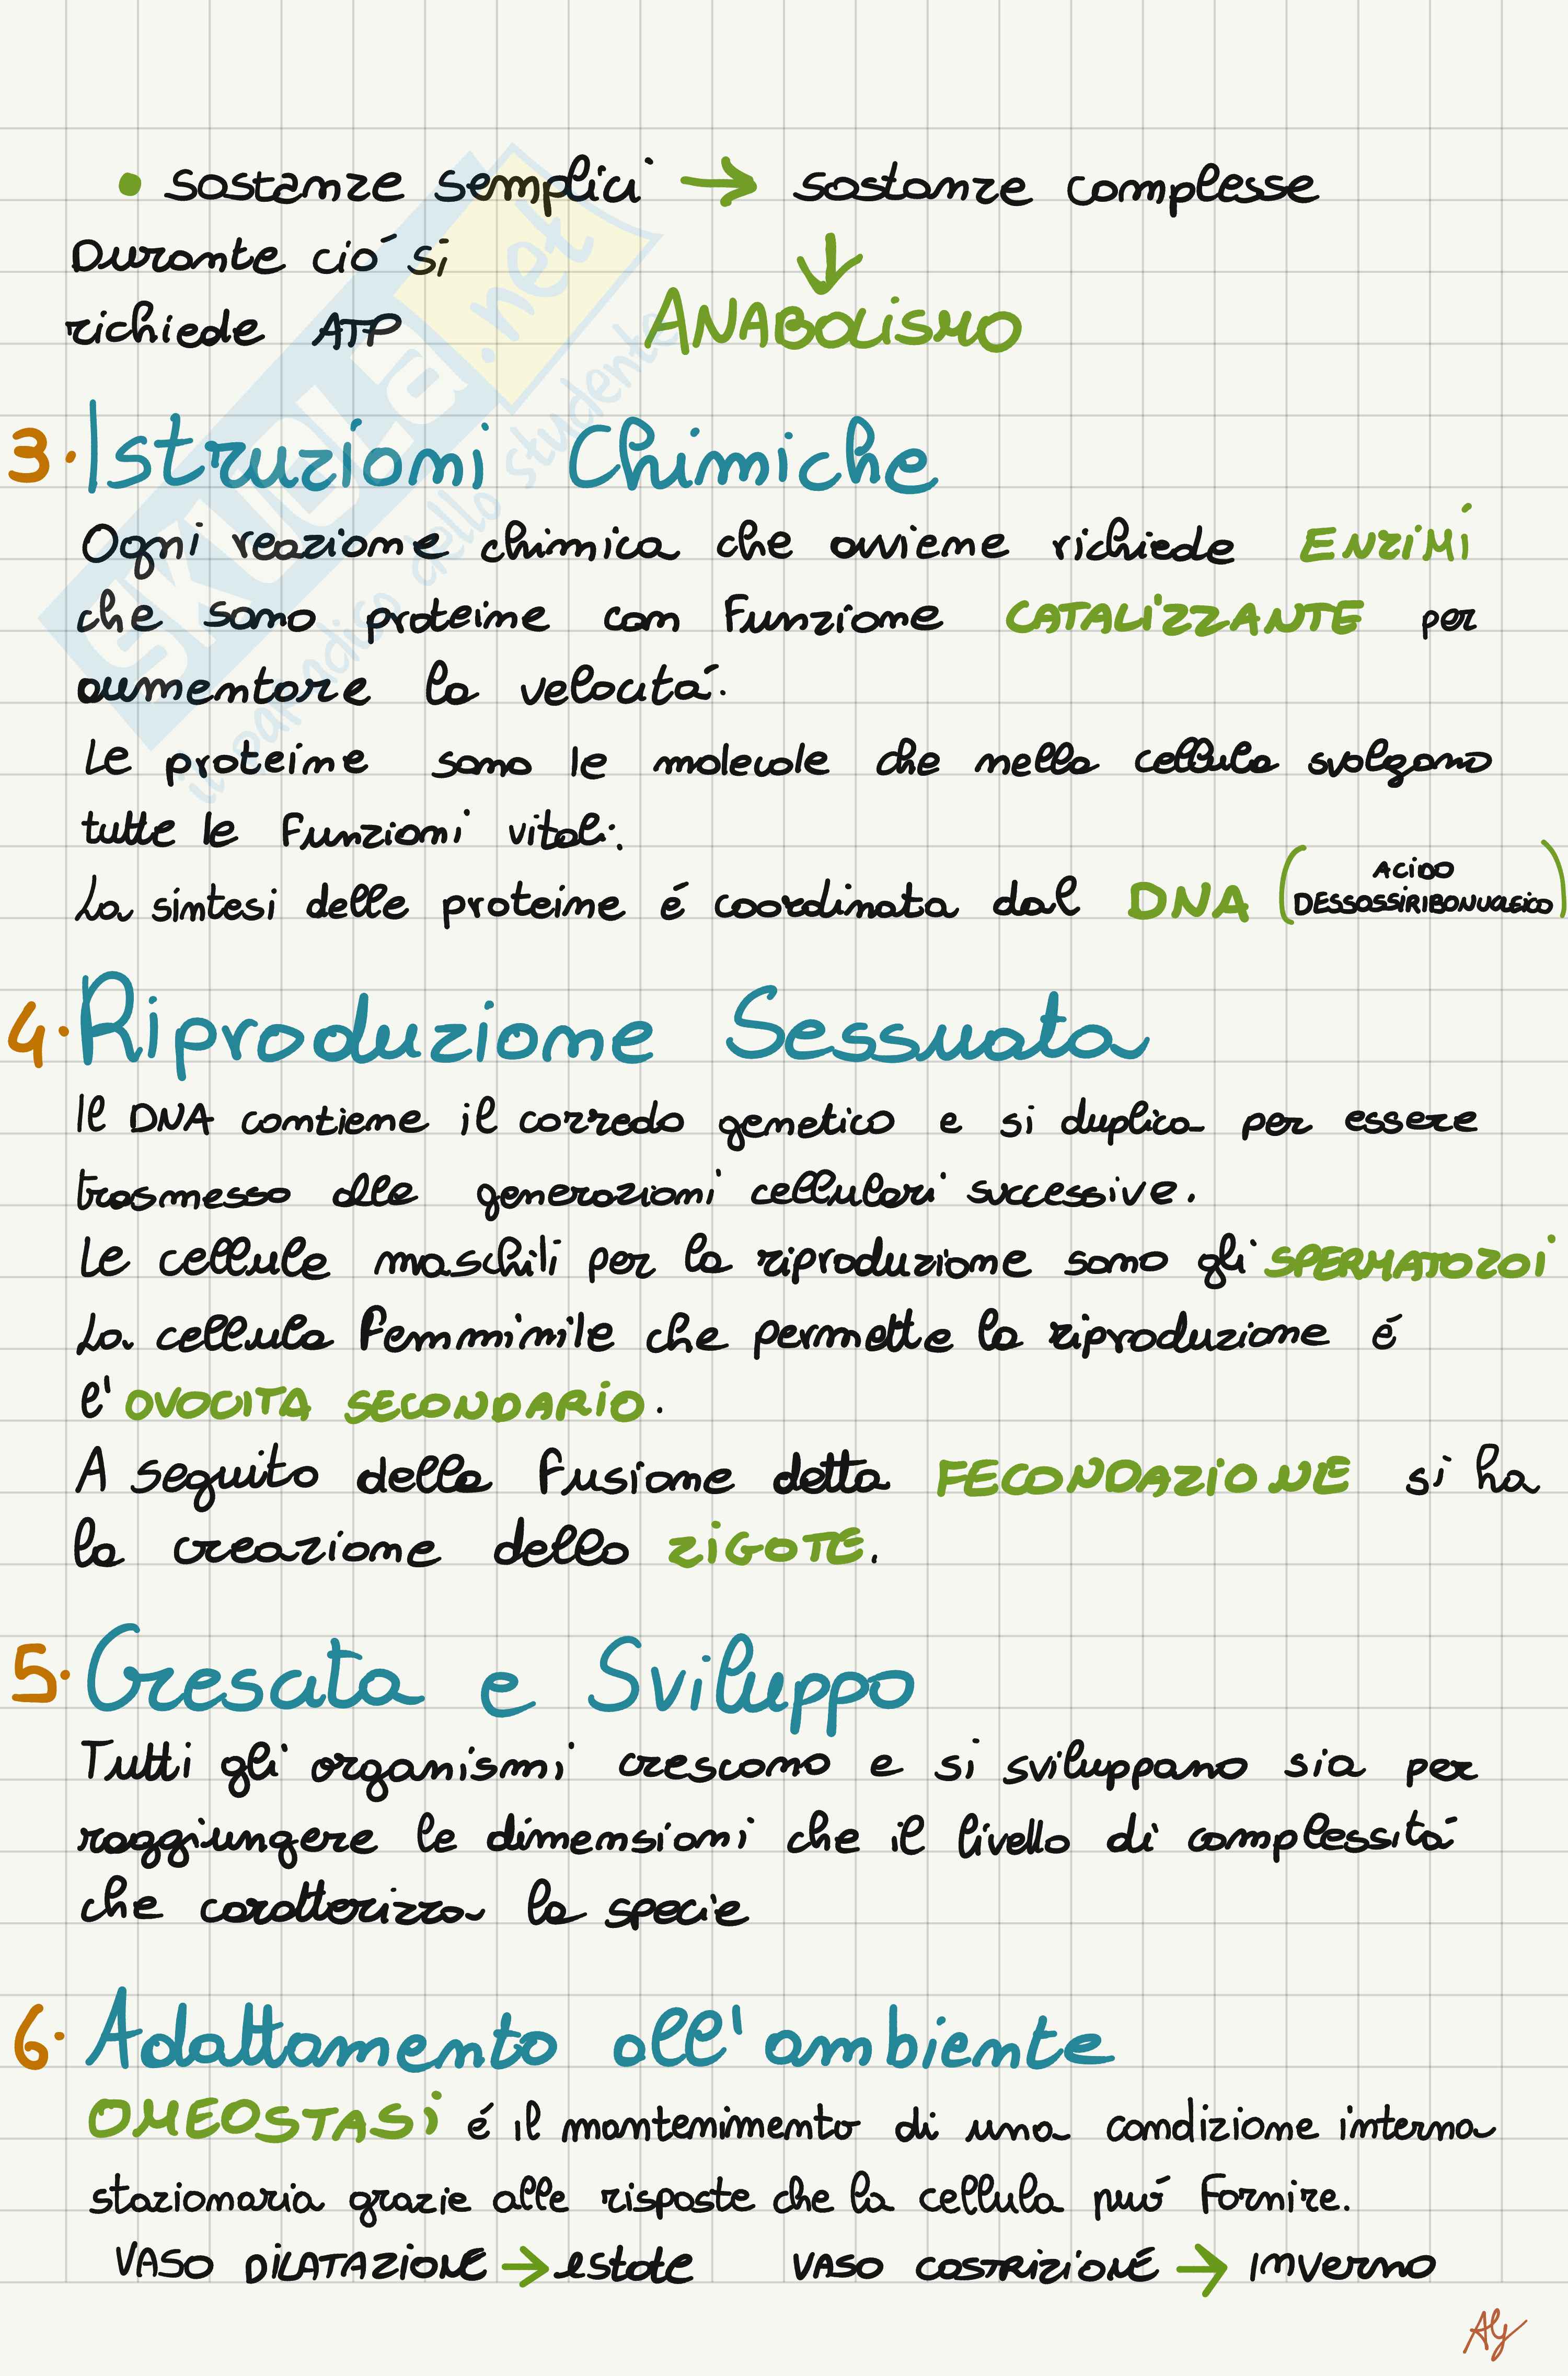 • sostanze semplici → sostanze complesse
Durante ció si
richiede ATP
↓
ANABOLISMO
3. Istruzioni Chimiche
Ogni reazione chimica che avviene richiede ENZIMI
che sono proteine con funzione CATALIZZANTE per
aumentare la velocitá.
Le proteine sono le molecole che nella cellula svolgono
tutte le funzioni vitali.
La sintesi delle proteine é coordinata dal DNA (ACIDO
DESSOSSIRIBONUCLEICO)
4. Riproduzione Sessuata
Il DNA contiene il corredo genetico e si duplica per essere
trasmesso alle generazioni cellulari successive.
Le cellule maschili per la riproduzione sono gli SPERMATOZOI
La cellula femminile che permette la riproduzione é
l'OVOCITA SECONDARIO.
A seguito della fusione detta FECONDAZIONE si ha
la creazione dello ZIGOTE.
5. Crescita e Sviluppo
Tutti gli organismi crescono e si sviluppano sia per
raggiungere le dimensioni che il livello di complessitá
che caratterizza la specie
6. Adattamento all'ambiente
OMEOSTASI é il mantenimento di una condizione interna
stazionaria grazie alle risposte che la cellula puó fornire.
VASO DILATAZIONE → estate VASO COSTRIZIONE → inverno
Aly
SKUOLA.net
il paradiso dello studente